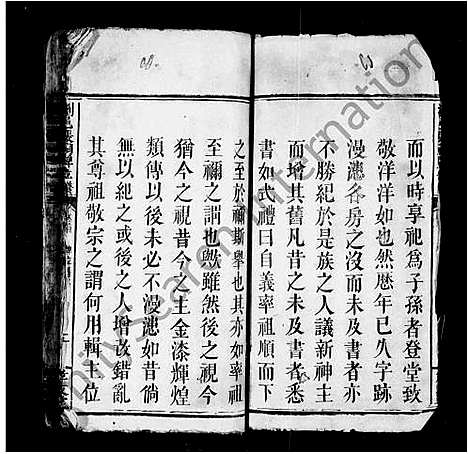 而以時享祀爲子孫者登堂致
敬洋洋如也然歷年已久字跡
漫漶各房之沒而未及書者亦
不勝紀於是族之人議新神主
而增其舊凡昔之未及書者悉
書如式禮曰自義率祖順而下
之至於禰斯舉也其亦如率祖
至禰之謂也歟雖然後之視今
猶今之視昔今之主金漆輝煌
類傳以後未必不漫漶如昔倘
無以紀之或後之人增改錯亂
其尊祖敬宗之謂何用輯主位